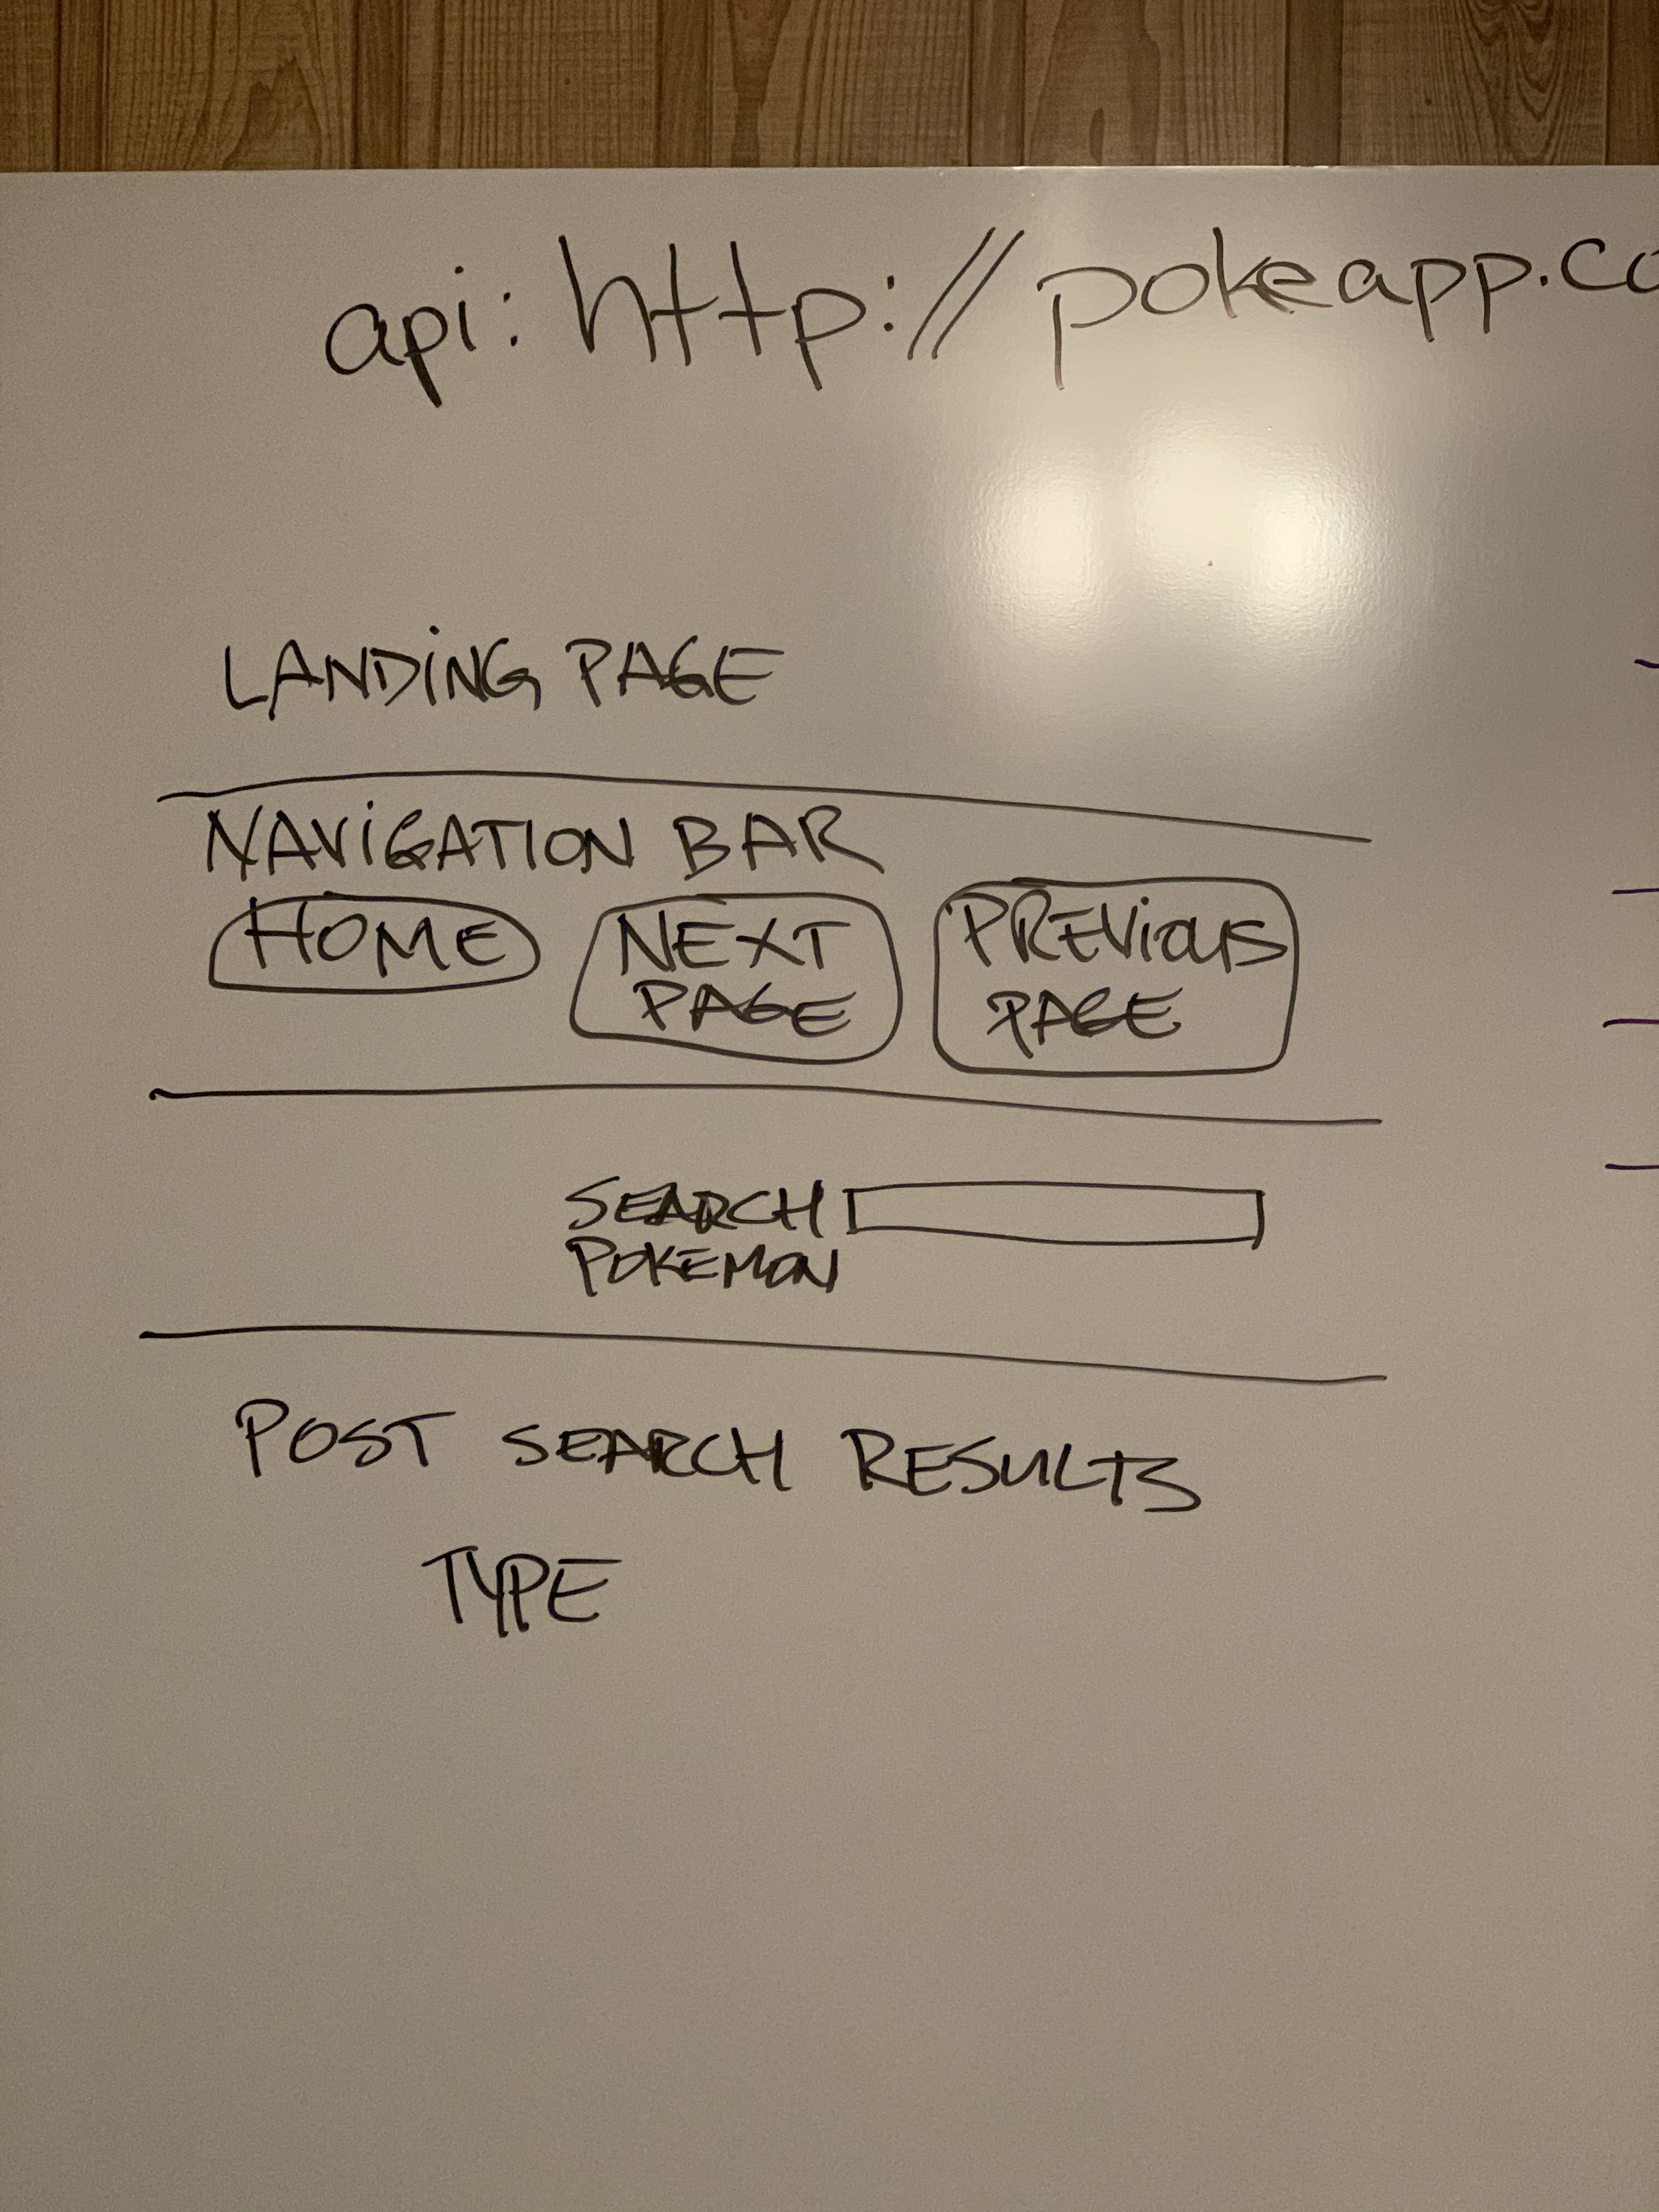 api: http://pokeapp.co
LANDiNG PAGE
NAViGATION BAR
HOME
NEXT
PAGE
PREViOUS
PAGE
SEARCH
POKEMON
POST SEARCH RESULTS
TYPE